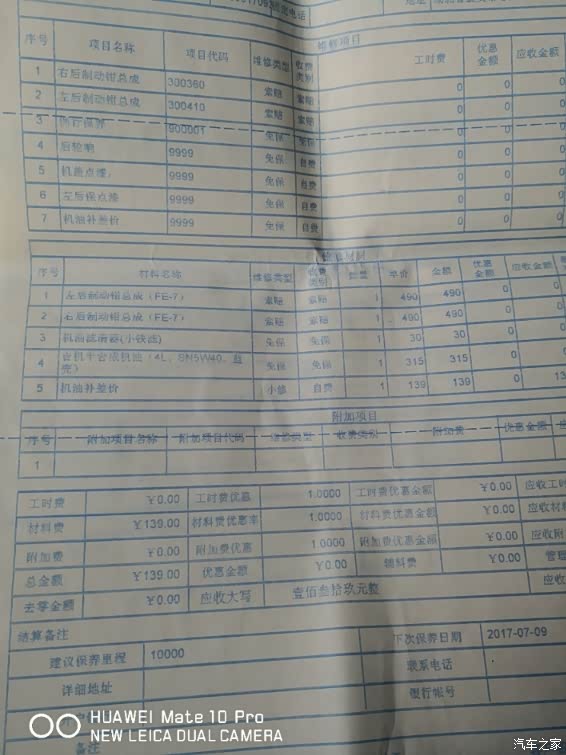 维修项目
序号 项目名称 项目代码 维修类型 收费类别 工时费 优惠金额 应收金额
1 右后制动钳总成 300360 索赔 索赔 0 0 0
2 左后制动钳总成 300410 索赔 索赔 0 0 0
3 保养 900001 免保 免保 0 0 0
4 后轮响 9999 免保 自费 0 0 0
5 机盖点漆, 9999 免保 自费 0 0 0
6 左后保点漆 9999 免保 自费 0 0 0
7 机油补差价 9999 免保 自费 0 0 0
序号 材料名称 维修类型 收费类别 数量 单价 金额 优惠金额 应收金额
1 左后制动钳总成（FE-7） 索赔 索赔 1 490 490 0
2 右后制动钳总成（FE-7） 索赔 索赔 1 490 490 0
3 机油滤清器(小铁滤) 免保 免保 1 30 30 0
4 吉利半合成机油（4L、SN5W40、壳） 免保 免保 1 315 315 0
5 机油补差价 小修 自费 1 139 139 0
附加项目
序号 附加项目名称 附加项目代码 维修类型 收费类别 附加费 优惠金额
1
工时费 ￥0.00 工时费优惠 1.0000 工时费优惠金额 ￥0.00 应收工时
材料费 ￥139.00 材料费优惠率 1.0000 材料费优惠金额 ￥0.00 应收材
附加费 ￥0.00 附加费优惠 1.0000 附加费优惠金额 ￥0.00 应收附
总金额 ￥139.00 优惠金额 ￥0.00 辅料费 ￥0.00
去零金额 ￥0.00 应收大写 壹佰叁拾玖元整 应收
结算备注 下次保养日期 2017-07-09
建议保养里程 10000 联系电话
详细地址 银行帐号
备注
HUAWEI Mate 10 Pro
NEW LEICA DUAL CAMERA
汽车之家